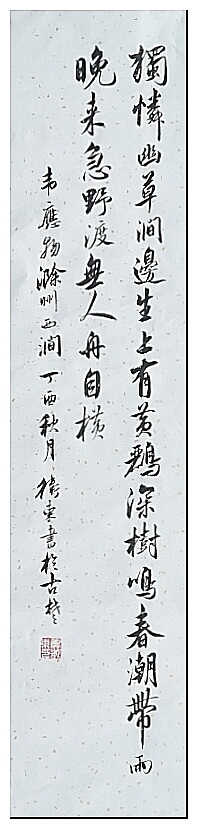 獨憐幽草澗邊生上有黄鸝深樹鳴春潮帶雨
晚来急野渡無人舟自横
韦應物滁州西澗丁酉秋月衛東書於古楚